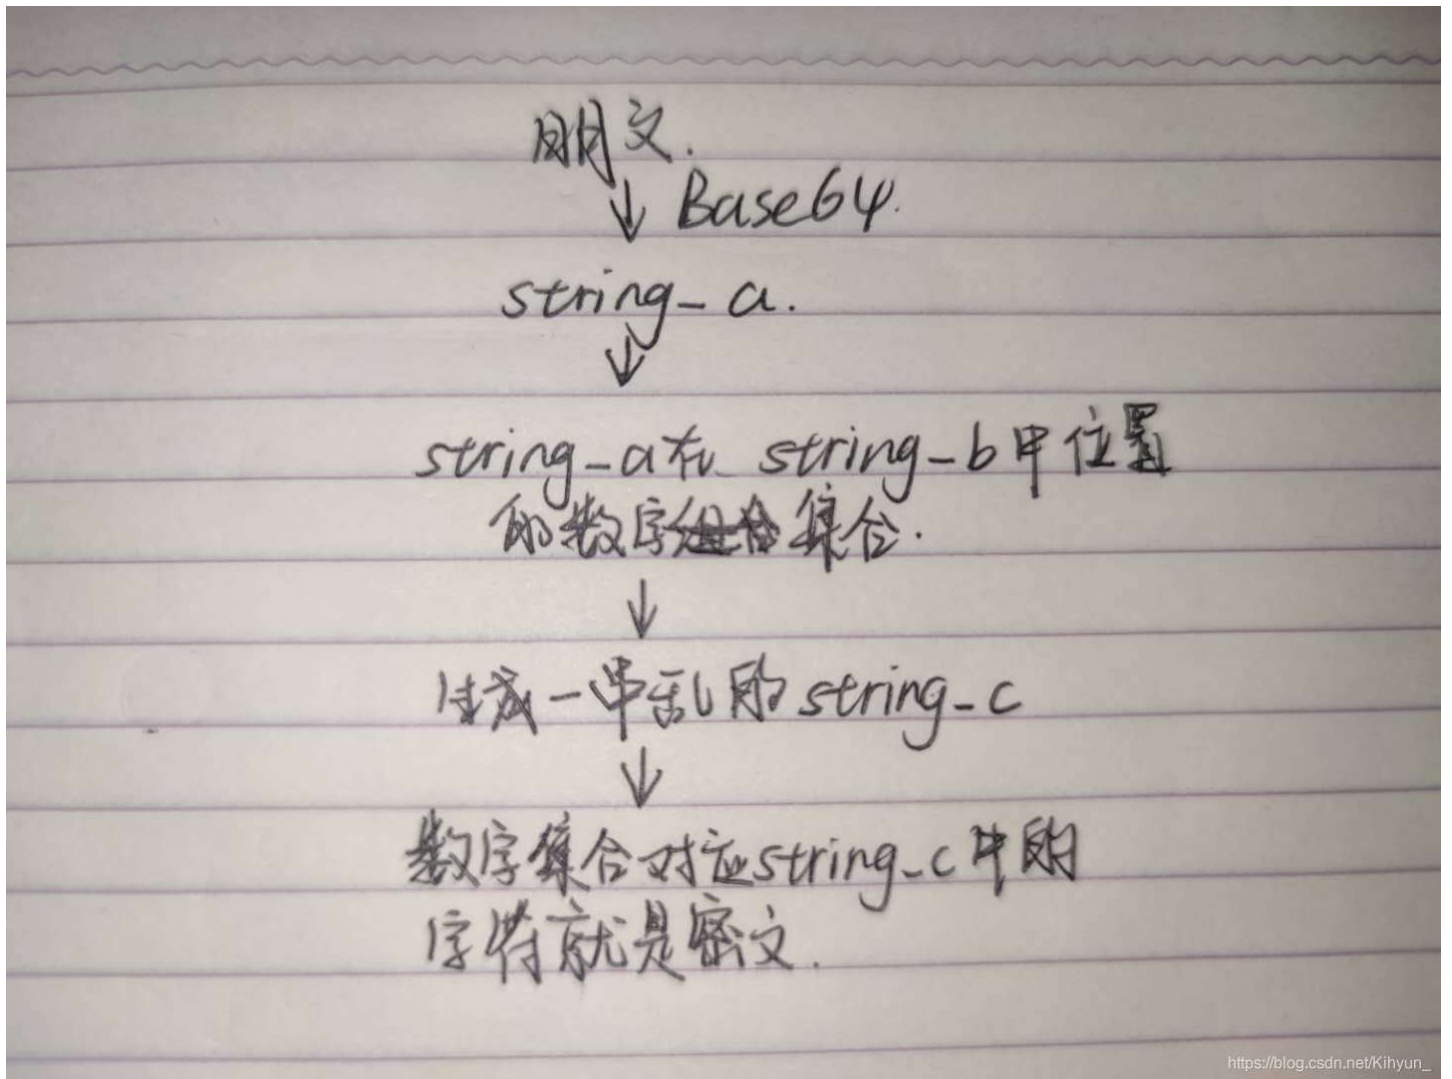 明文.
↓ Base64.
string_a.
↓
string_a在 string_b中位置
的数字集合.
↓
生成一串乱的string_c
↓
数字集合对应string_c中的
字符就是密文.
https://blog.csdn.net/Kihyun_